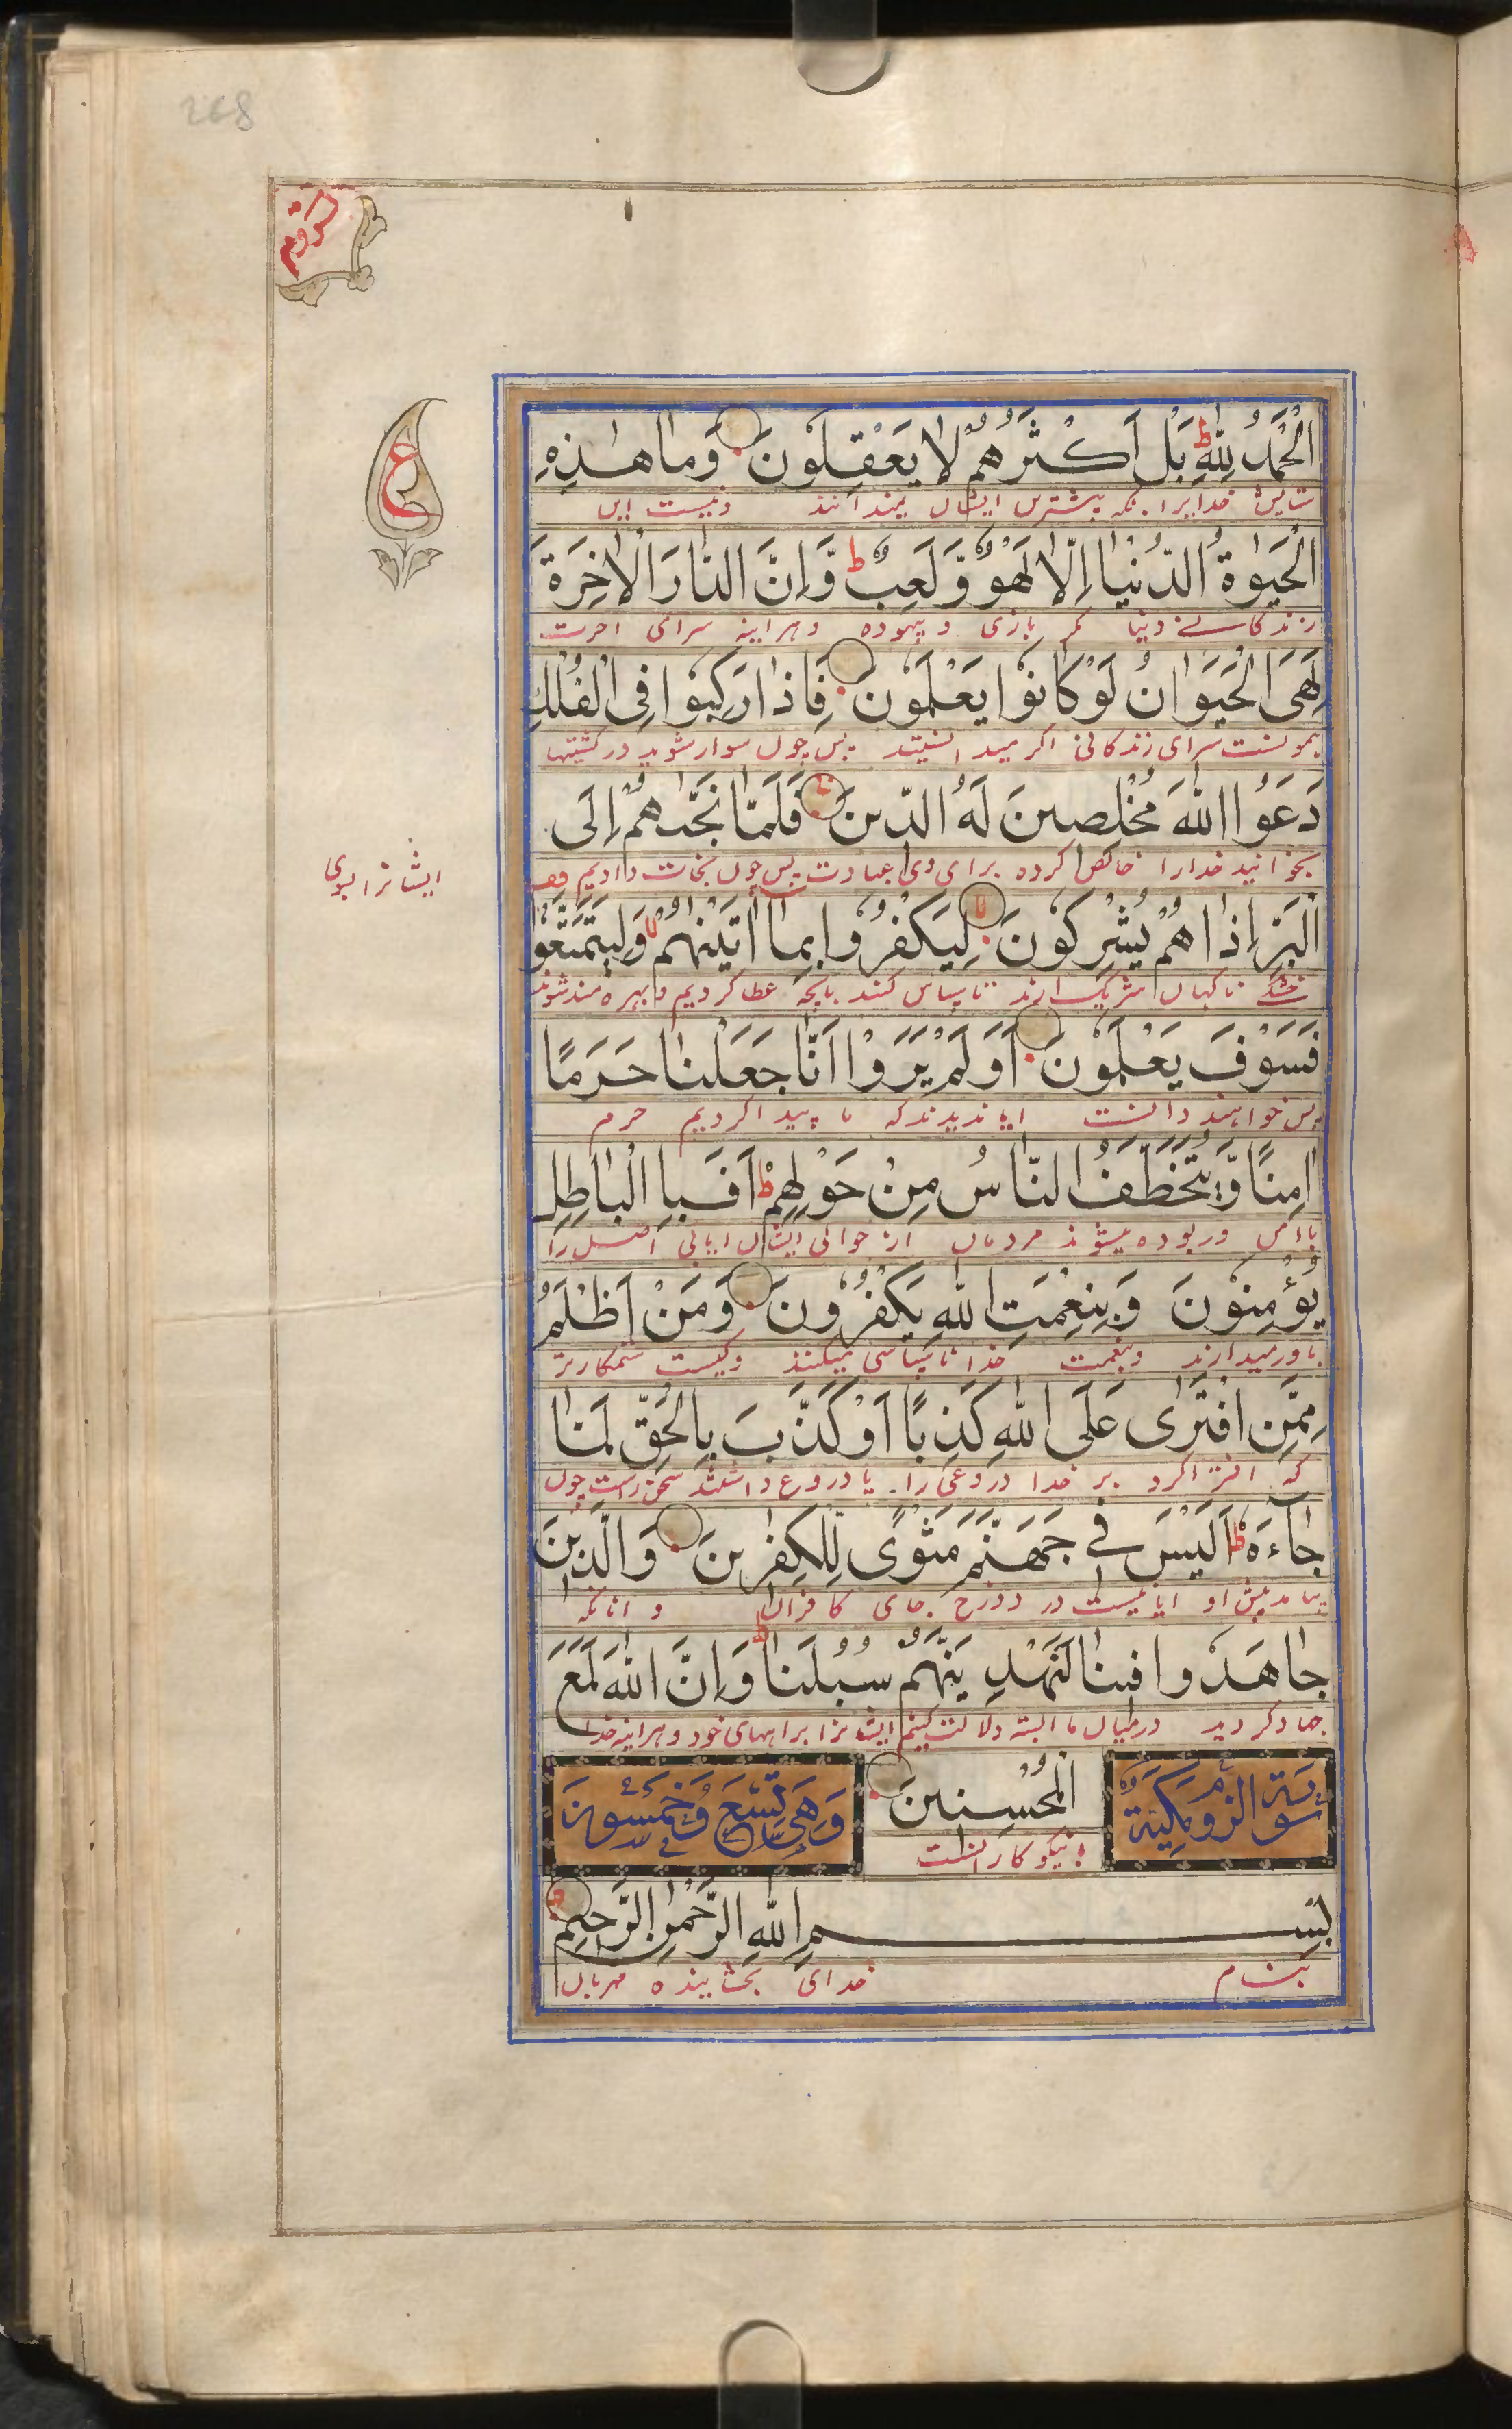 268
سورة روم
الْحَمْدُ لِلّٰهِ ط بَلْ اَكْثَرُهُمْ لَا يَعْقِلُوْنَ وَمَا هٰذِهِ
ستایش خدایرا بلکه بیشترین ایشان نمیدانند ونیست این
ع
الْحَيٰوةُ الدُّنْيَا اِلَّا لَهْوٌ وَّلَعِبٌ ط وَّاِنَّ الدَّارَ الْاٰخِرَةَ
زندگانی دنیا مگر بازی و بیهوده و هراینه سرای اخرت
لَهِىَ الْحَيَوَانُ لَوْ كَانُوْا يَعْلَمُوْنَ فَاِذَا رَكِبُوْا فِى الْفُلْكِ
سرای زندگانی اگر میدانستند پس چون سوار شوید در کشتیها
دَعَوُا اللّٰهَ مُخْلِصِيْنَ لَهُ الدِّيْنَ فَلَمَّا نَجّٰىهُمْ اِلَى
بخوانید خدارا خالص کرده برای وی عبادت پس چون نجات دادیم
ایشانرا بسوی
الْبَرِّ اِذَا هُمْ يُشْرِكُوْنَ لا لِيَكْفُرُوْا بِمَا اٰتَيْنٰهُمْ لا وَلِيَتَمَتَّعُوْا
خشکی ناگهان شریک ارند تا سپاس کنند بانچه عطا کردیم و بهره مند شوند
فَسَوْفَ يَعْلَمُوْنَ اَوَلَمْ يَرَوْا اَنَّا جَعَلْنَا حَرَمًا
پس خواهند دانست ایا ندیدند که ما پیدا کردیم حرم
اٰمِنًا وَّيُتَخَطَّفُ النَّاسُ مِنْ حَوْلِهِمْ ط اَفَبِا الْبَاطِلِ
باامن و ربوده میشوند مردمان از حوالی ایشان ایا بی اصل را
يُؤْمِنُوْنَ وَبِنِعْمَتِ اللّٰهِ يَكْفُرُوْنَ وَمَنْ اَظْلَمُ
باور میدارند و بنعمت خدا ناسپاسی میکنند وکیست ستمکارتر
مِمَّنِ افْتَرٰى عَلَى اللّٰهِ كَذِبًا اَوْ كَذَّبَ بِالْحَقِّ لَمَّا
که افترا کرد بر خدا دروغی را یا دروغ داشتند سخن راست چون
جَآءَهٗ ط اَلَيْسَ فِى جَهَنَّمَ مَثْوًى لِّلْكٰفِرِيْنَ وَالَّذِيْنَ
بیامد پیش او ایا نیست در دوزخ جای کافران و انانکه
جَاهَدُوْا فِيْنَا لَنَهْدِيَنَّهُمْ سُبُلَنَا ط وَاِنَّ اللّٰهَ لَمَعَ
جهاد کردند درمیان ما البته دلالت کنیم ایشانرا براههای خود و هراینه خدا
سورة الروم مكية الْمُحْسِنِيْنَ وَهِيَ تِسْعٌ وَخَمْسُوْنَ
با نیکوکارانست
بِسْمِ اللّٰهِ الرَّحْمٰنِ الرَّحِيْمِ
بنام خدای بخشاینده مهربان